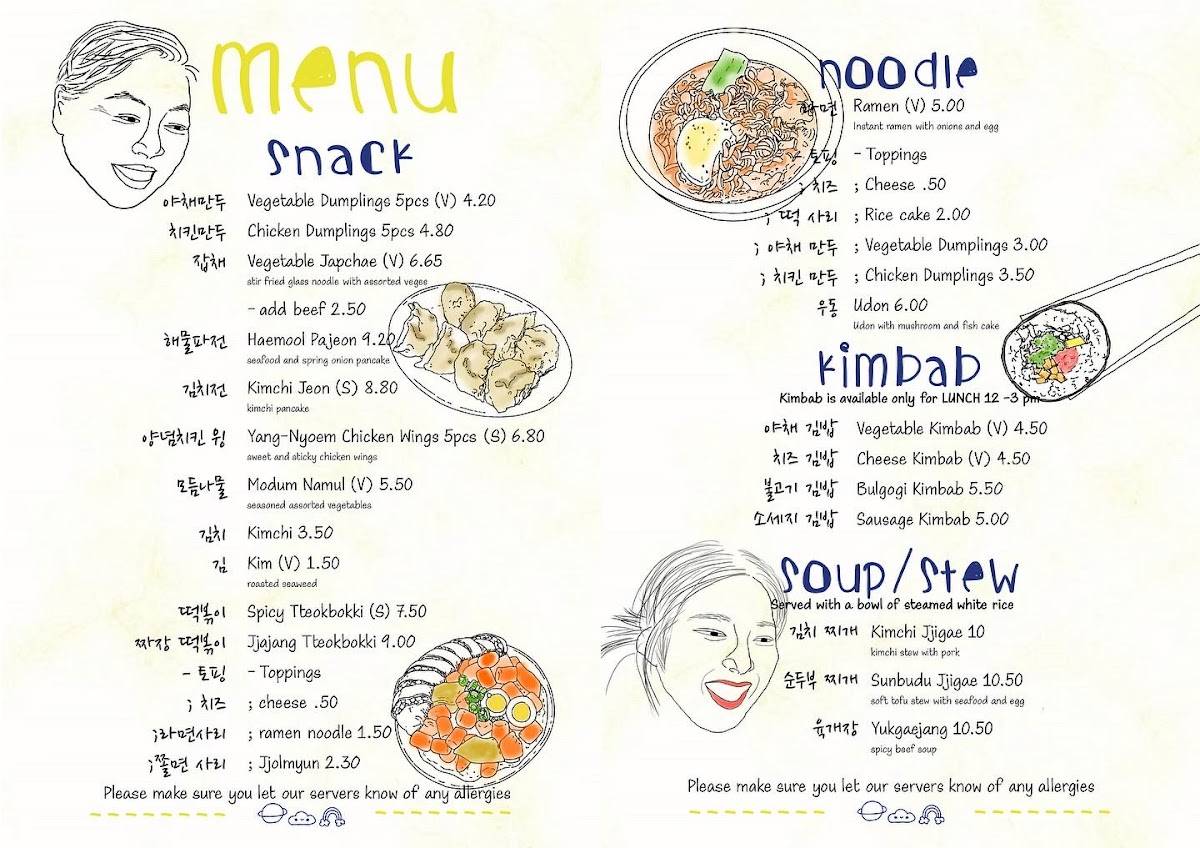 menu
snack
야채만두 Vegetable Dumplings 5pcs (V) 4.20
치킨만두 Chicken Dumplings 5pcs 4.80
잡채 Vegetable Japchae (V) 6.65
stir fried glass noodle with assorted vegee
- add beef 2.50
해물파전 Haemool Pajeon 9.20
seafood and spring onion pancake
김치전 Kimchi Jeon (S) 8.80
kimchi pancake
양념치킨 윙 Yang-Nyoem Chicken Wings 5pcs (S) 6.80
sweet and sticky chicken wings
모듬나물 Modum Namul (V) 5.50
seasoned assorted vegetables
김치 Kimchi 3.50
김 Kim (V) 1.50
roasted seaweed
떡볶이 Spicy Tteokbokki (S) 7.50
짜장 떡볶이 Jjajang Tteokbokki 9.00
- 토핑 - Toppings
; 치즈 ; cheese .50
;라면사리 ; ramen noodle 1.50
;쫄면 사리 ; Jjolmyun 2.30
Please make sure you let our servers know of any allergies
noodle
라면 Ramen (V) 5.00
Instant ramen with onione and egg
- 토핑 - Toppings
; 치즈 ; Cheese .50
; 떡 사리 ; Rice cake 2.00
; 야채 만두 ; Vegetable Dumplings 3.00
; 치킨 만두 ; Chicken Dumplings 3.50
우동 Udon 6.00
Udon with mushroom and fish cake
kimbab
Kimbab is available only for LUNCH 12 -3 pm
야채 김밥 Vegetable Kimbab (V) 4.50
치즈 김밥 Cheese Kimbab (V) 4.50
불고기 김밥 Bulgogi Kimbab 5.50
소세지 김밥 Sausage Kimbab 5.00
soup/stew
Served with a bowl of steamed white rice
김치 찌개 Kimchi Jjigae 10
kimchi stew with pork
순두부 찌개 Sunbudu Jjigae 10.50
soft tofu stew with seafood and egg
육개장 Yukgaejang 10.50
spicy beef soup
Please make sure you let our servers know of any allergies